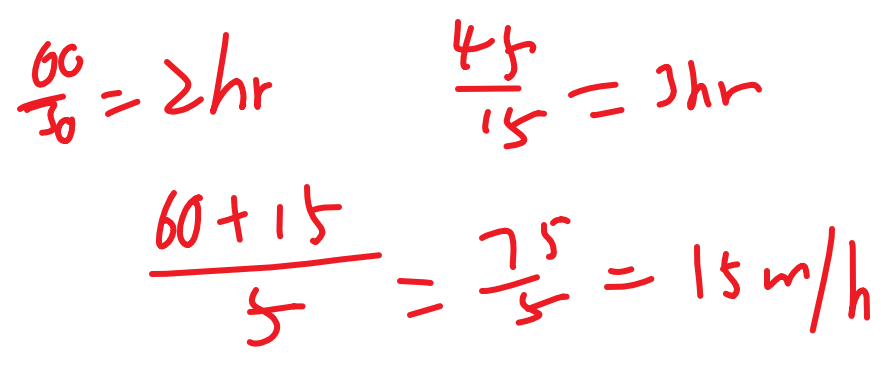 60/30 = 2hr
45/15 = 3hr
60+15/5 = 75/5 = 15 m/h